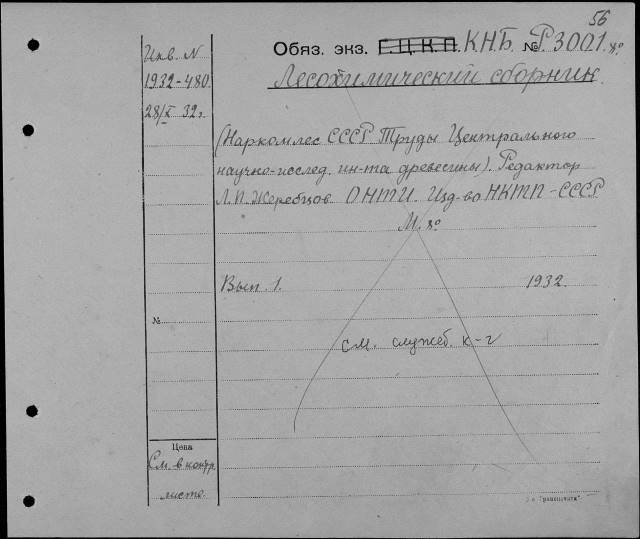 56
Обяз. экз. Г.Ц.К.П. К.Н.Б. № Р3001 8º
Лесохимический сборник.
Инв. N
1932-480.
28/X 32 г.
(Наркомлес СССР Труды Центрального
научно-исслед. ин-та древесины). Редактор
Л.П. Жеребцов. ОНТИ. Изд-во НКТП-СССР
М. 8º
Вып. 1. 1932.
№
см. служеб. к-г
Цена
См. в контр.
листе.